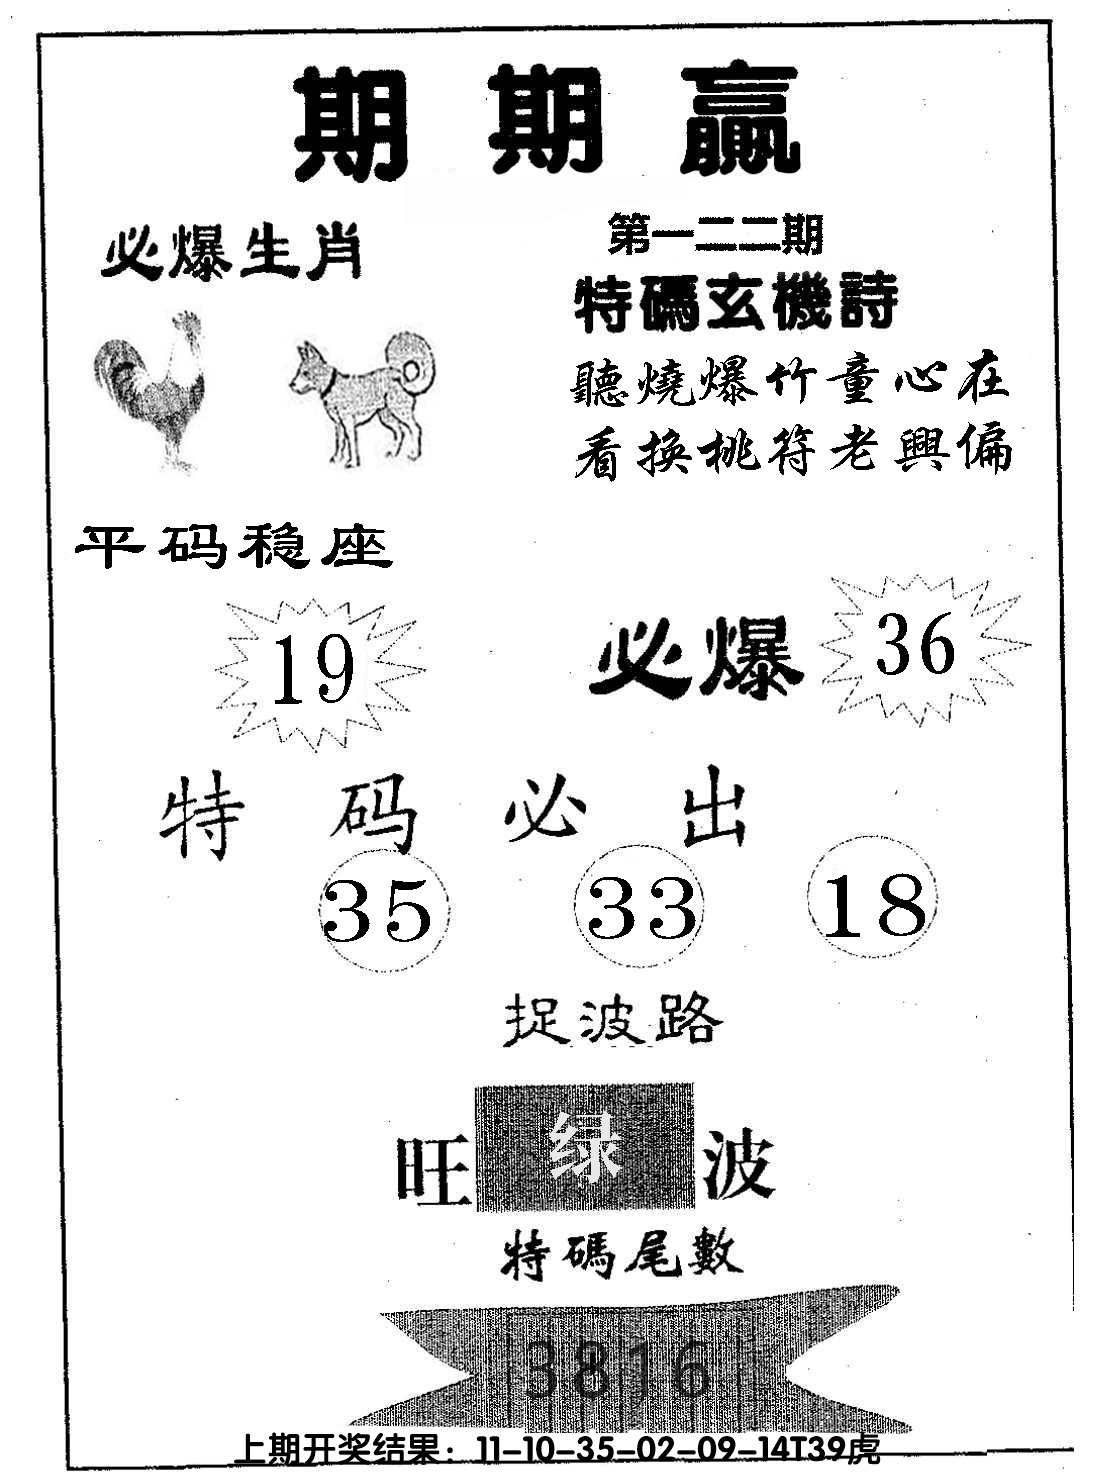 期期贏
必爆生肖
第一二二期
特碼玄機詩
聽燒爆竹童心在
看換桃符老興偏
平码稳座
19
必爆
36
特码必出
35 33 18
捉波路
旺绿波
特碼尾數
3816
上期开奖结果：11-10-35-02-09-14T39虎